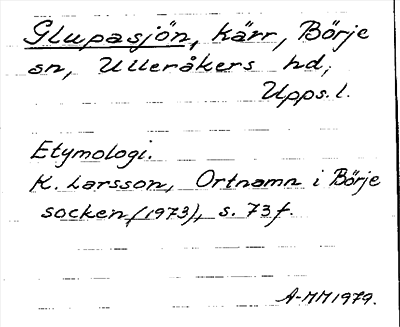 Glupasjön, Kärr, Börje
sn, Ulleråkers hd,
Upps. l.
Etymologi.
K. Larsson, Ortnamn i Börje
socken, (1973), s. 73 f.
A-MM 1979.